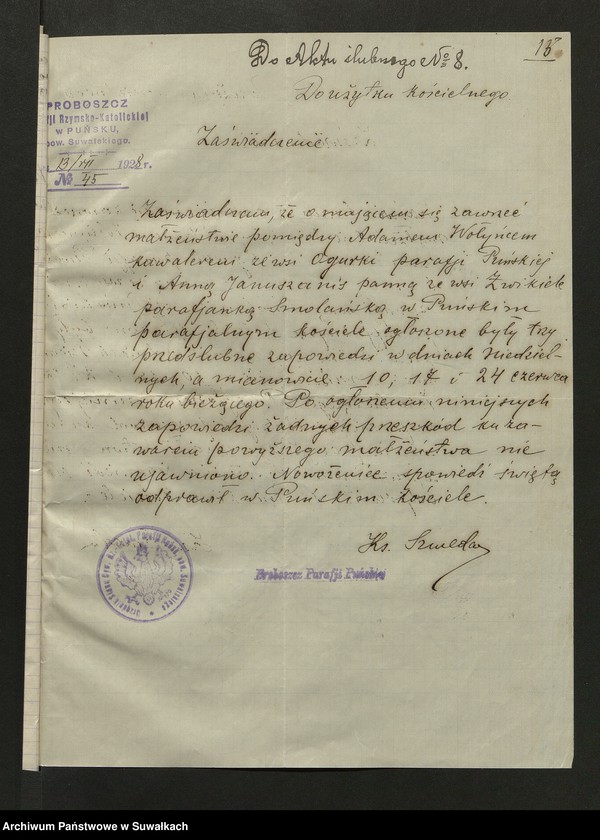 Do Aktu ślubnego № 8.
18
Do użytku kościelnego
PROBOSZCZ
fji Rzymsko-Katolickiej
W PUŃSKU,
pow. Suwalskiego.
13/VII 1928 r.
№ 45
Zaświadczenie
Zaświadczam, że o mającem się zawrzeć
małżeństwie pomiędzy Adamem Wołyńcem
kawalerem ze wsi Ogurki parafji Puńskiej
i Anną Januszanis panną ze wsi Żwikiele
parafjanką Smolańską w Puńskim
parafjalnym kościele ogłoszone były trzy
przedślubne zapowiedzi w dniach Niedziel-
nych, a mianowicie: 10, 17 i 24 czerwca
roku bieżącego. Po ogłoszeniu niniejszych
zapowiedzi żadnych przeszkód ku za-
warciu powyższego małżeństwa nie
ujawniono. Nowożeniec spowiedź świętą
odprawił w Puńskim kościele.
Ks. Szweda
Proboszcz Parafji Puńskiej
Archiwum Państwowe w Suwałkach